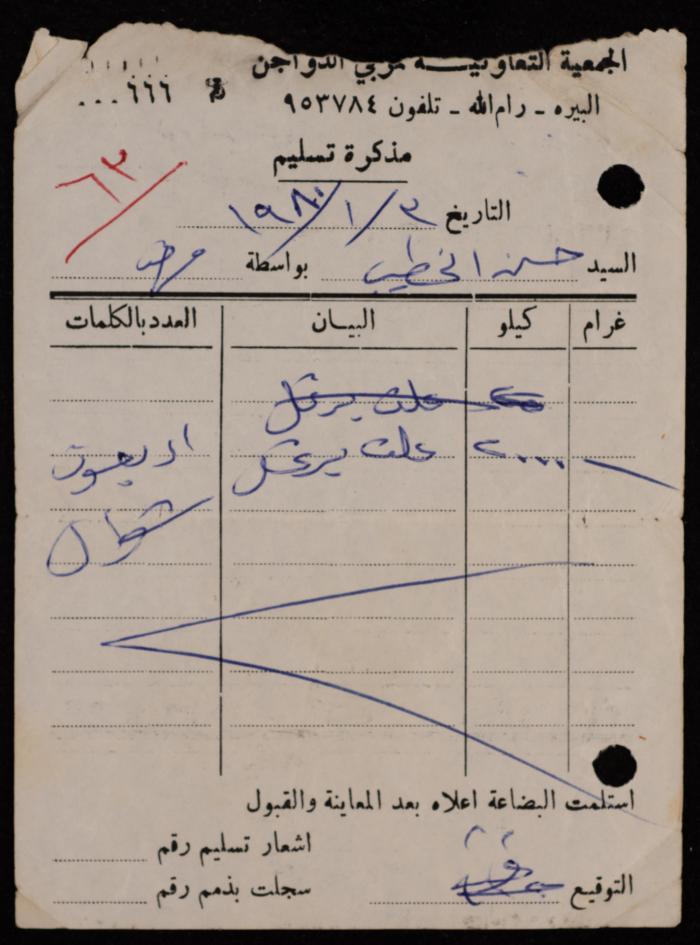 الجمعية التعاونيـــة مربي الدواجن
البيره ـ رام الله ـ تلفون ٩٥٣٧٨٤
٠٠٠٦٦٦
مذكرة تسليم
٦٣
التاريخ ٣/١/١٩٨٠
السيد حسن الخطيب بواسطة
غرام كيلو البيـــان العدد بالكلمات
علف بيرتش
٢٠٠٠ علف بيرتش اربعون
شوال
استلمت البضاعة اعلاه بعد المعاينة والقبول
اشعار تسليم رقم
التوقيع
سجلت بذمم رقم